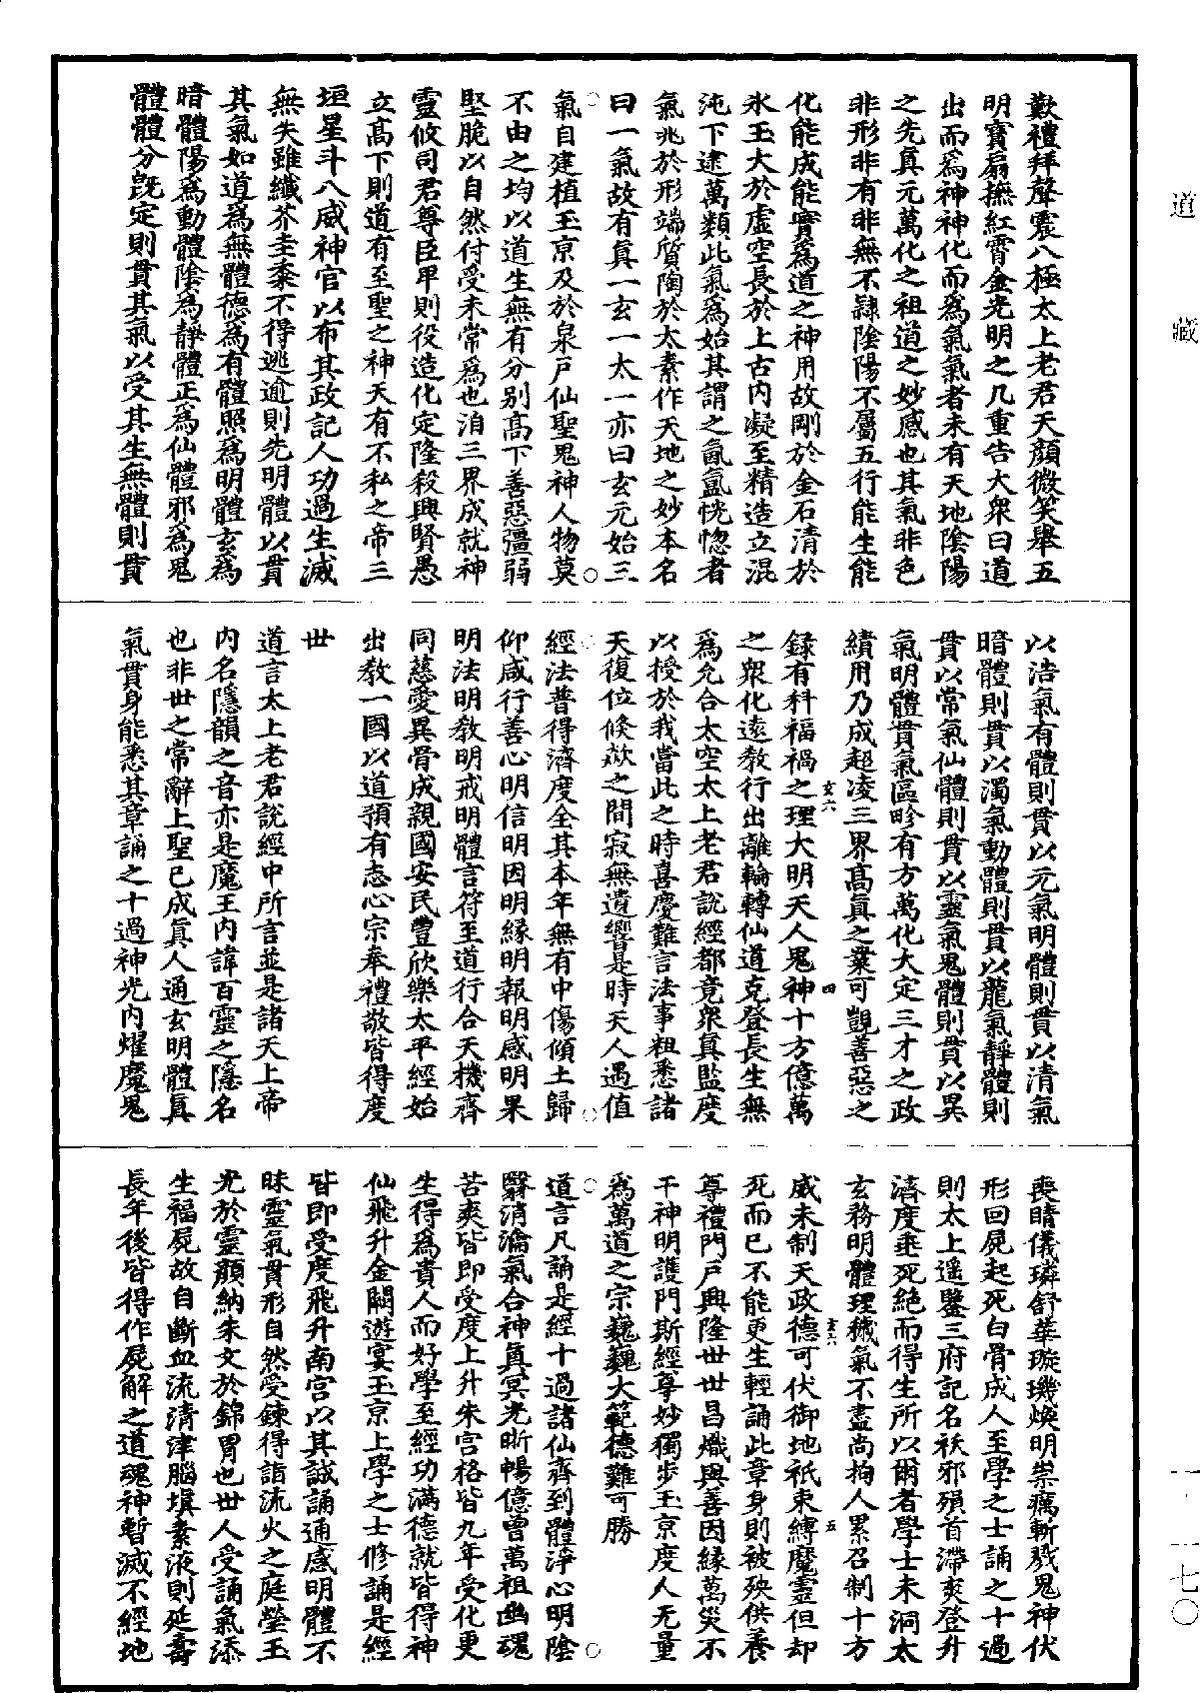 道藏
歎禮拜聲震八極太上老君天顏微笑舉五
明寶扇撫紅霄金光明之几重告大衆曰道
出而爲神神化而爲氣氣者未有天地陰陽
之先真元萬化之祖道之妙感也其氣非色
非形非有非無不隸陰陽不屬五行能生能
化能成能實爲道之神用故剛於金石清於
氷玉大於虛空長於上古内凝至精造立混
沌下逮萬類此氣爲始其謂之氤氳恍惚者
氣兆於形端質陶於太素作天地之妙本名
曰一氣故有真一玄一太一亦曰玄元始三
氣自建植玉京及於泉戸仙聖鬼神人物莫
不由之均以道生無有分别高下善惡彊弱
堅脆以自然付受未常爲也洎三界成就神
靈攸司君尊臣卑則役造化定隆殺興賢愚
立高下則道有至聖之神天有不私之帝三
垣星斗八威神官以布其政記人功過生滅
無失雖纖芥圭黍不得逃逾則先明體以貫
其氣如道爲無體德爲有體照爲明體玄爲
暗體陽爲動體陰爲靜體正爲仙體邪爲鬼
體體分旣定則貫其氣以受其生無體則貫
以浩氣有體則貫以元氣明體則貫以清氣
暗體則貫以濁氣動體則貫以龍氣靜體則
貫以常氣仙體則貫以靈氣鬼體則貫以異
氣明體貫氣區畛有方萬化大定三才之政
績用乃成超凌三界高真之業可覬善惡之
錄有科福禍之理大明天人鬼神十方億萬
玄六
四
之衆化遠教行出離輪轉仙道克登長生無
爲允合太空太上老君說經都竟衆真監度
以授於我當此之時喜慶難言法事粗悉諸
天復位倏歘之間寂無遺響是時天人遇值
經法普得濟度全其本年無有中傷傾土歸
仰咸行善心明信明因明緣明報明感明果
明法明教明戒明體言符至道行合天機齊
同慈愛異骨成親國安民豐欣樂太平經始
出教一國以道預有志心宗奉禮敬皆得度
世
道言太上老君說經中所言並是諸天上帝
内名隱韻之音亦是魔王内諱百靈之隱名
也非世之常辭上聖已成真人通玄明體真
氣貫身能悉其章誦之十過神光内燿魔鬼
喪睛儀璘舒華璇璣煥明祟癘斬戮鬼神伏
形回屍起死白骨成人至學之士誦之十過
則太上遥鑒三府記名祅邪殞首滯爽登升
濟度垂死絶而得生所以爾者學士未洞太
玄務明體理穢氣不盡尚拘人累召制十方
威未制天政德可伏御地祇束縛魔靈但却
玄六
五
死而已不能更生輕誦此章身則被殃供養
尊禮門戸興隆世世昌熾與善因緣萬災不
干神明護門斯經尊妙獨步玉京度人无量
爲萬道之宗巍巍大範德難可勝
道言凡誦是經十過諸仙齊到體淨心明陰
翳消瀹氣合神真冥光晰暢億曾萬祖幽魂
苦爽皆即受度上升朱宫格皆九年受化更
生得爲貴人而好學至經功滿德就皆得神
仙飛升金闕遊宴玉京上學之士修誦是經
皆即受度飛升南宫以其誠誦通感明體不
昧靈氣貫形自然受鍊得詣流火之庭瑩玉
光於靈顏納朱文於錦冑也世人受誦氣添
生福屍故自斷血流清津腦塡素液則延壽
長年後皆得作屍解之道魂神暫滅不經地
一·一七〇